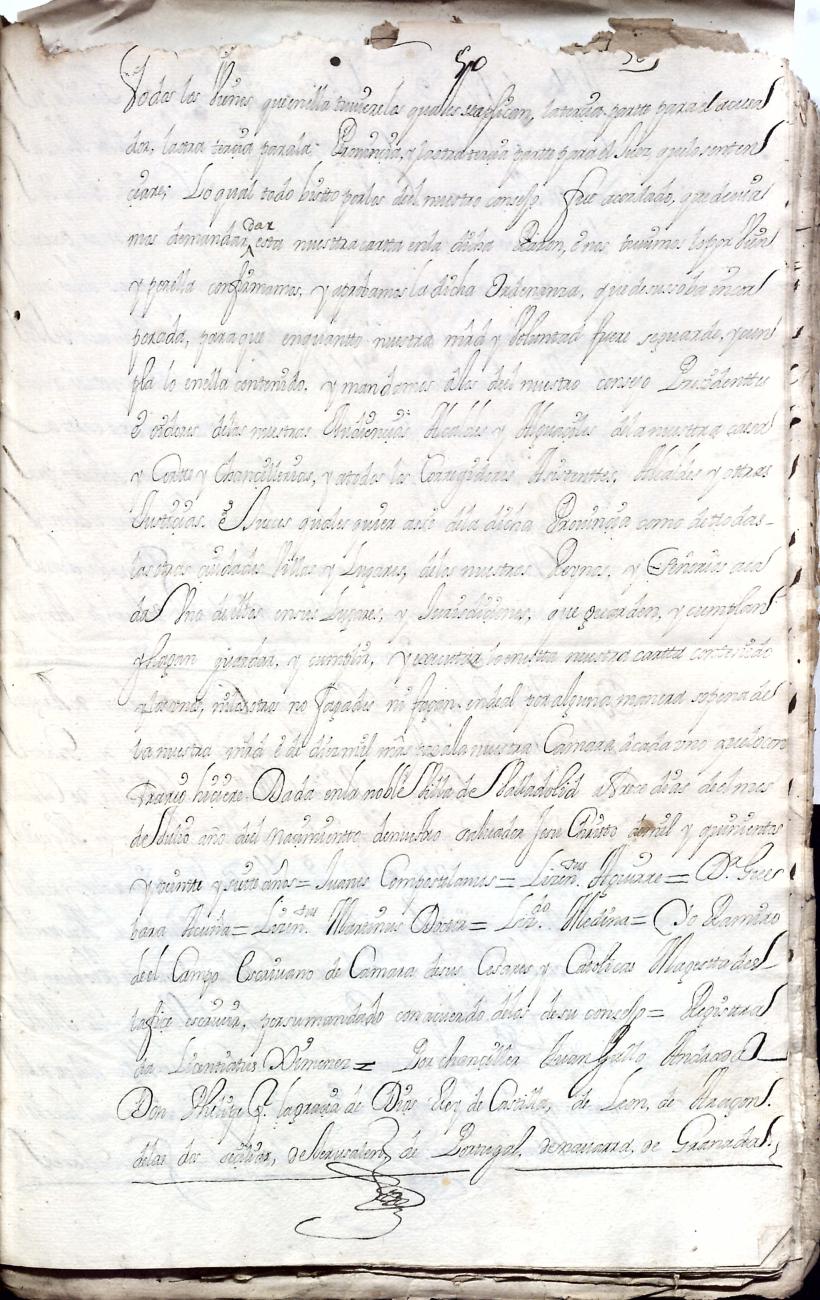 50
Todos los Vienes que en ella tuviere los quales se aplican, la tercia partte para el acusa
dor, la otra tercia para la Provincia, y la otra tercia partte para el Juez, que lo senten
ciare; Lo qual todo bistto por los del nuestro consejo. fue acordado, que devia
mos demandar dar esta nuesttra cartta en la dicha Razon, e nos tuvimos lo por Vien
y por ella confirmamos, y aprobamos la dicha Ordenanza, que de susso ba encor
porada, para que enquantto nuestra mrd y Voluntad fuere se guarde, y cun
pla lo en ella contenido. y mandamos a los del nuestro consejo Presidenttes
e oidores de las nuestras Audiencias Alcaldes y Alguaciles de la nuestra casa
y Cortte y Chancillerias, y a todos los Corregidores Asistenttes, Alcaldes y ottras
Justicias e Jueces quales quier assi de la dicha Provincia como de todas
las otras ciudades Villas y Lugares, de los nuestros Reynos, y Señorios a ca
da Uno de ellos en sus Lugares, y Jurisdiciones, que guarden, y cumplan
y hagan guardar, y cumplir, y executtar lo en estta nuestra cartta contenido
y los unos, ni los otros no fagades ni fagan ende al por alguna manera so pena de
la nuestra mrd e de diez mil mrs para la nuestra Camara, a cada uno que lo con
trario hiciere. Dada en la noble Villa de Valladolid a trece dias de el mes
de Julio año del nacimientto de nuestro salvador Jesu Christo de mil y quinientos
y veintte y siete años= Juanes Compostelanus= Lizen.tus Aguirre= D.r Gue
bara Acuña= Lizen.tus Martinus Doctor= Liz.do Medina= Yo Ramiro
de el Campo Escrivano de Camara de sus Cesarea y Catolicas Magestades
la fize escrivir, por su mandado con acuerdo de los de su consejo= Registra
da Licentiatus Ximenez= Por chanciller Juan Gallo Andrada
Don Phelipe P.r la gracia de Dios Rey de Castilla, de Leon, de Aragon
de las dos sicilias, de Jerusalen, de Porttugal, de navarra, de Granada,